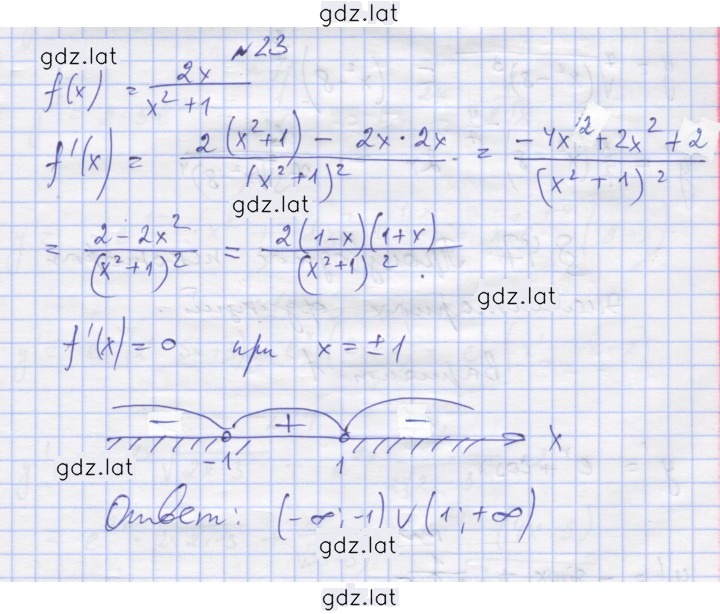 gdz.lat
№23
gdz.lat
f(x) = 2x / (x² + 1)
f'(x) = (2(x²+1) − 2x·2x) / (x²+1)² = (−4x² + 2x² + 2) / (x² + 1)²
gdz.lat
= (2 − 2x²) / (x²+1)² = 2(1−x)(1+x) / (x²+1)².
gdz.lat
f'(x) = 0 при x = ±1
− + −
-1 1 x
gdz.lat
Ответ: (−∞; −1) ∪ (1; +∞)
gdz.lat
gdz.lat